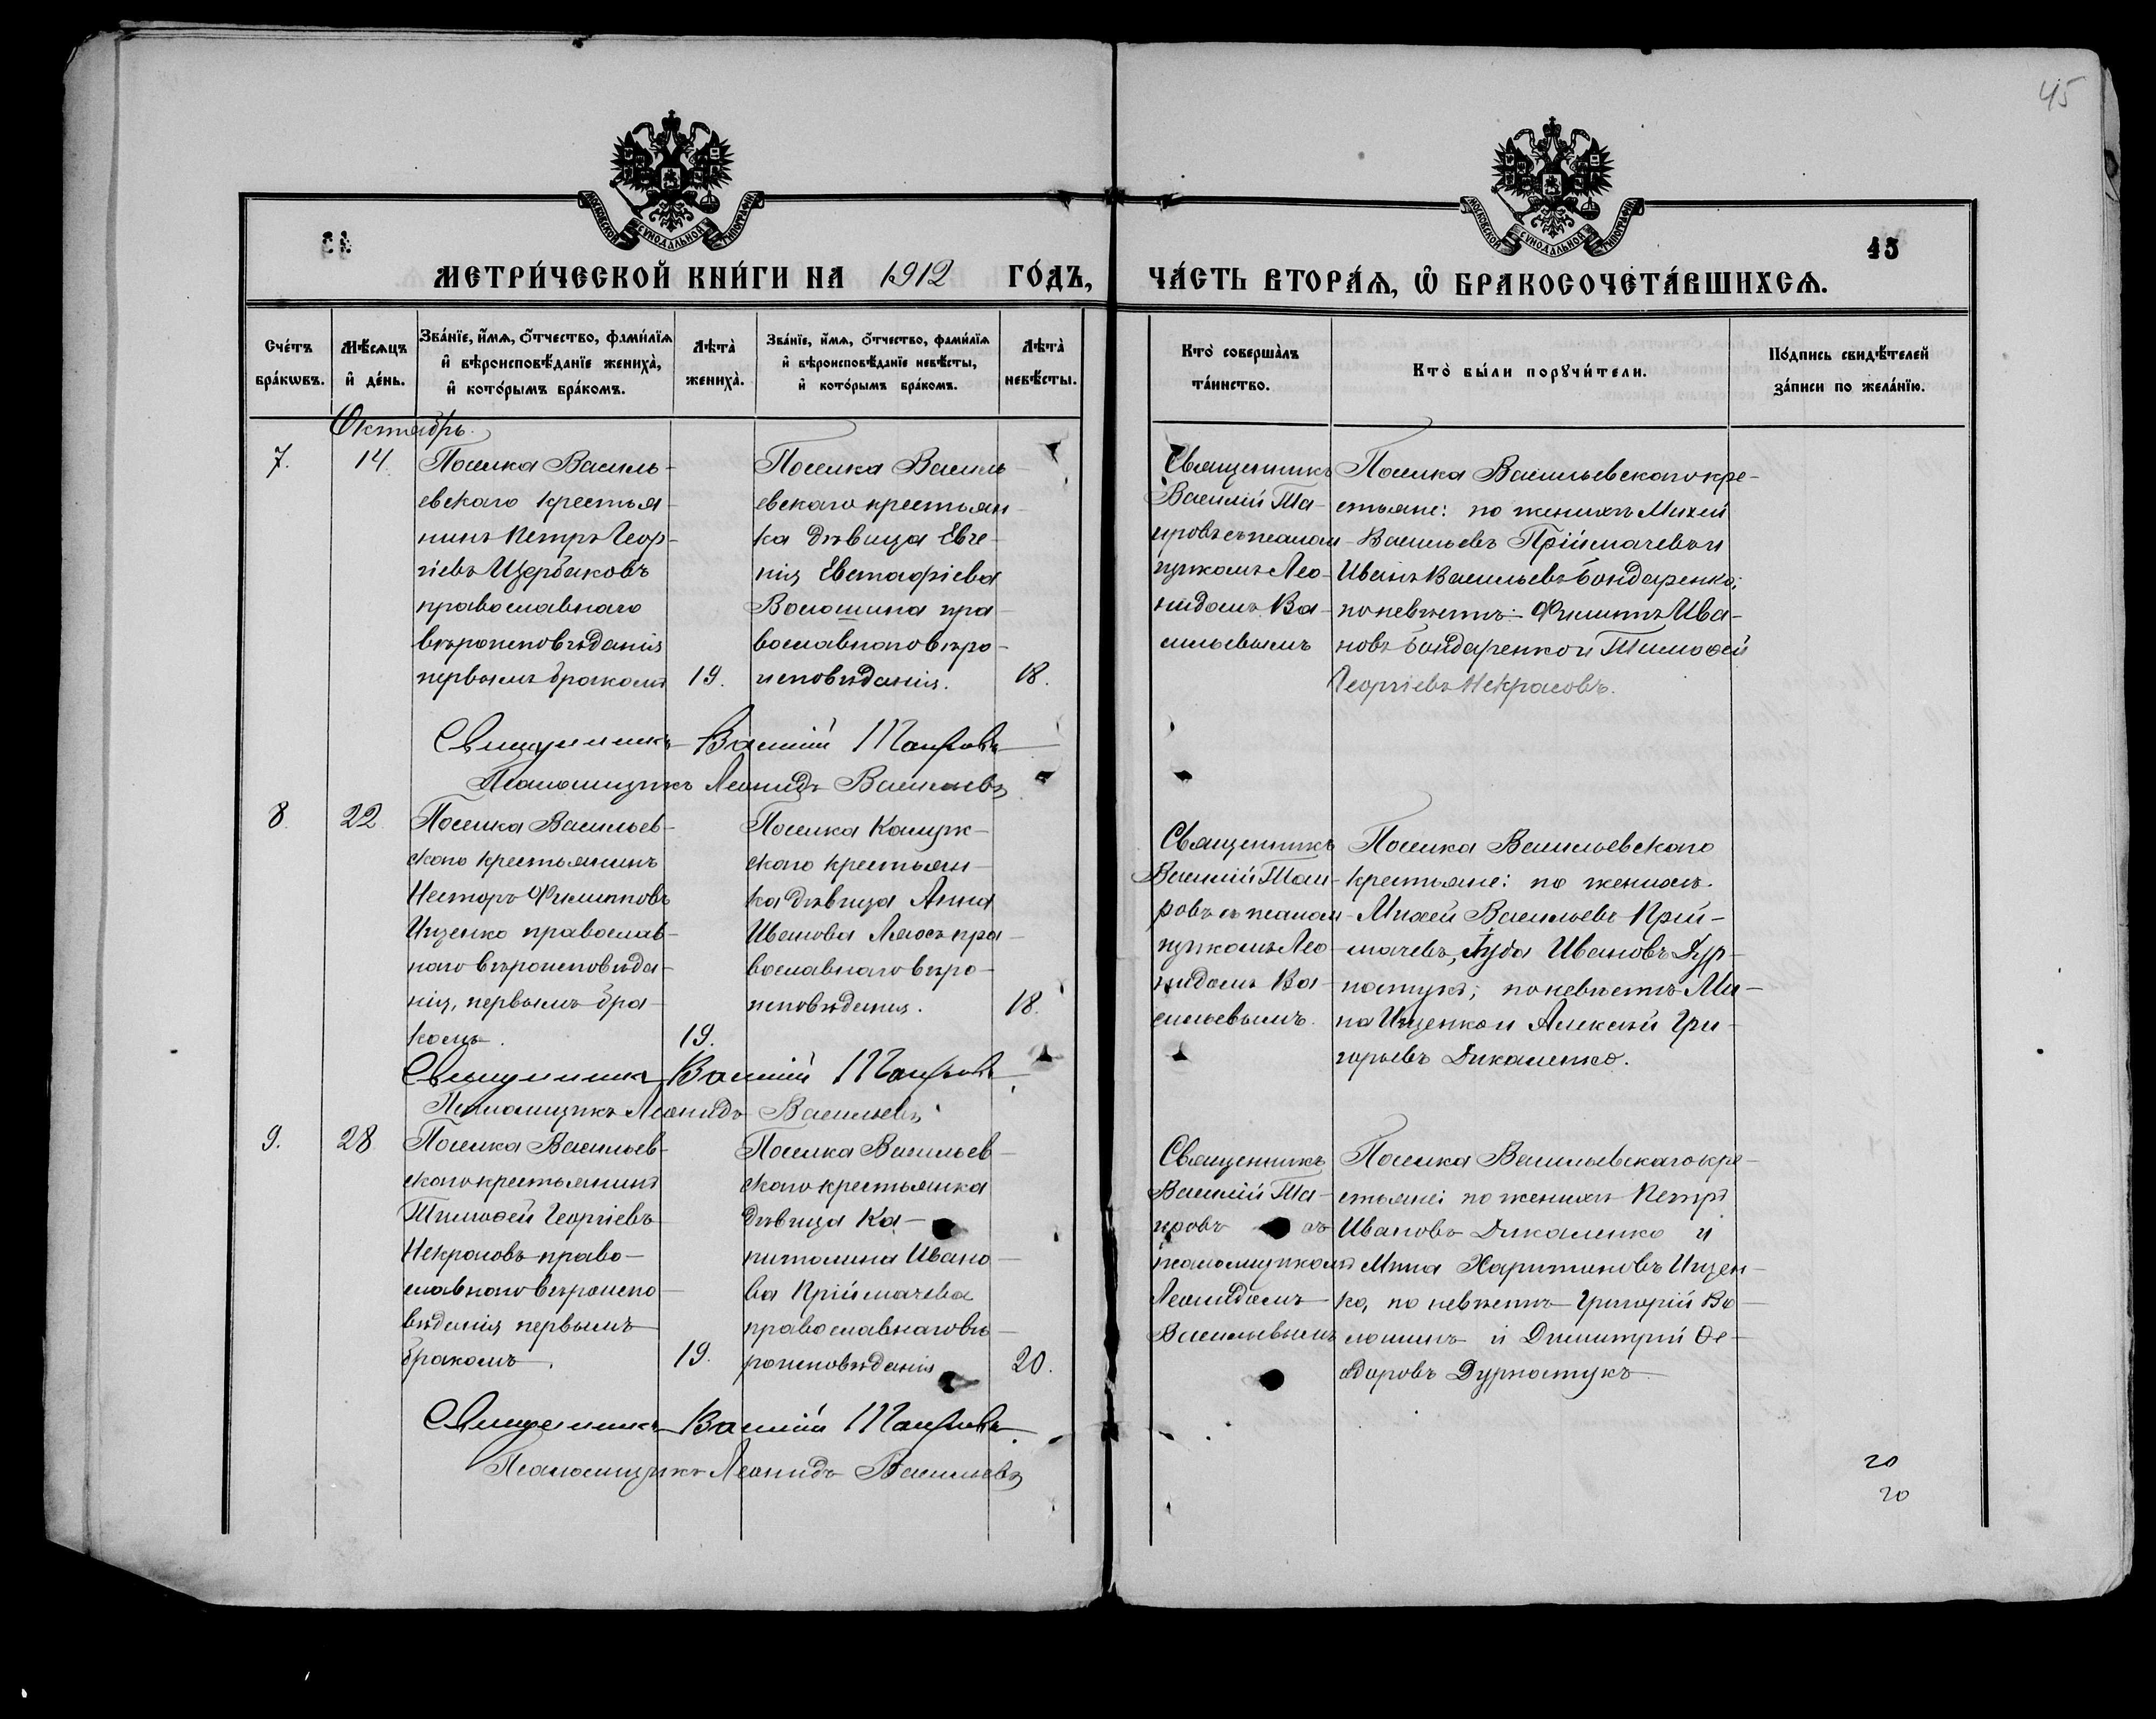 45
МОСКОВСКОЙ СѴНОДАЛЬНОЙ ТИПОГРАФІИ
МОСКОВСКОЙ СѴНОДАЛЬНОЙ ТИПОГРАФІИ
45
МЕТРИ́ЧЕСКОЙ КНИ́ГИ НА 1912 ГО́ДЪ,
ЧА́СТЬ ВТОРА́Ѧ, Ѡ҆ БРАКОСОЧЕТА́ВШИХСѦ.
Сче́тъ бра́кѡвъ.
Мѣ́сяцъ и҆ де́нь.
Зва́нїе, и҆́мѧ, ѻ҆́тчество, фами́лїѧ и҆ вѣроисповѣ́данїе жениха̀, и҆ кото́рымъ бра́комъ.
Лѣта̀ жениха̀.
Зва́нїе, и҆́мѧ, ѻ҆́тчество, фами́лїѧ и҆ вѣроисповѣ́данїе невѣ́сты, и҆ кото́рымъ бра́комъ.
Лѣта̀ невѣ́сты.
Кто̀ соверша̀лъ та́инство.
Кто̀ бы́ли порꙋчи́тели.
По́дпись свидѣ́телей за́писи по жела́нїю.
Октябрь.
7.
14.
Поселка Василь-
евскаго крестья-
нинъ Петръ Геор-
гіевъ Щербаковъ
православнаго
вѣроисповѣданія
первымъ бракомъ
19.
Поселка Василь-
евскаго крестьян-
ка дѣвица Евге-
нія Евстафіева
Волошина пра-
вославнаго вѣро-
исповѣданія.
18.
Священникъ
Василій Таи-
ровъ съ псалом-
щикомъ Лео-
нидомъ Ва-
сильевымъ
Поселка Васильевскаго кре-
стьяне: по женихѣ Михей
Васильевъ Пріймачевъ и
Иванъ Васильевъ Бондаренко;
по невѣстѣ: Филиппъ Ива-
новъ Бондаренко и Тимофей
Георгіевъ Некрасовъ.
Священникъ Василій Таировъ
Псаломщикъ Леонидъ Васильевъ
8.
22.
Поселка Васильев-
скаго крестьянинъ
Несторъ Филипповъ
Ищенко православ-
наго вѣроисповѣда-
нія, первымъ бра-
комъ.
19.
Поселка
скаго крестьян-
ка дѣвица Анна
Иванова пра-
вославнаго вѣро-
исповѣданія.
18.
Священникъ
Василій Таи-
ровъ съ псалом-
щикомъ Лео-
нидомъ Ва-
сильевымъ.
Поселка Васильевскаго
крестьяне: по женихѣ.
Михей Васильевъ Прій-
мачевъ, Іуда Ивановъ Дур-
; по невѣстѣ Ми-
на Ищенко и Алексѣй Гри-
горьевъ Дикаленко.
Священникъ Василій Таировъ
Псаломщикъ Леонидъ Васильевъ
9.
28
Поселка Васильев-
скаго крестьянинъ
Тимофей Георгіевъ
Некрасовъ право-
славнаго вѣроиспо-
вѣданія первымъ
бракомъ.
19.
Поселка Васильев-
скаго крестьянка
дѣвица Ка-
питолина Ивано-
ва Пріймачева
православнаго вѣ-
роисповѣданія
20.
Священникъ
Василій Таи-
ровъ съ
псаломщикомъ
Леонидомъ
Васильевымъ
Поселка Васильевскаго кре-
стьяне: по женихѣ Петръ
Ивановъ Дикаленко и
Мина Харитоновъ Ищен-
ко, по невѣстѣ Григорій Во-
лошинъ и Димитрій Ѳе-
одоровъ
Священникъ Василій Таировъ
Псаломщикъ Леонидъ Васильевъ
20
20